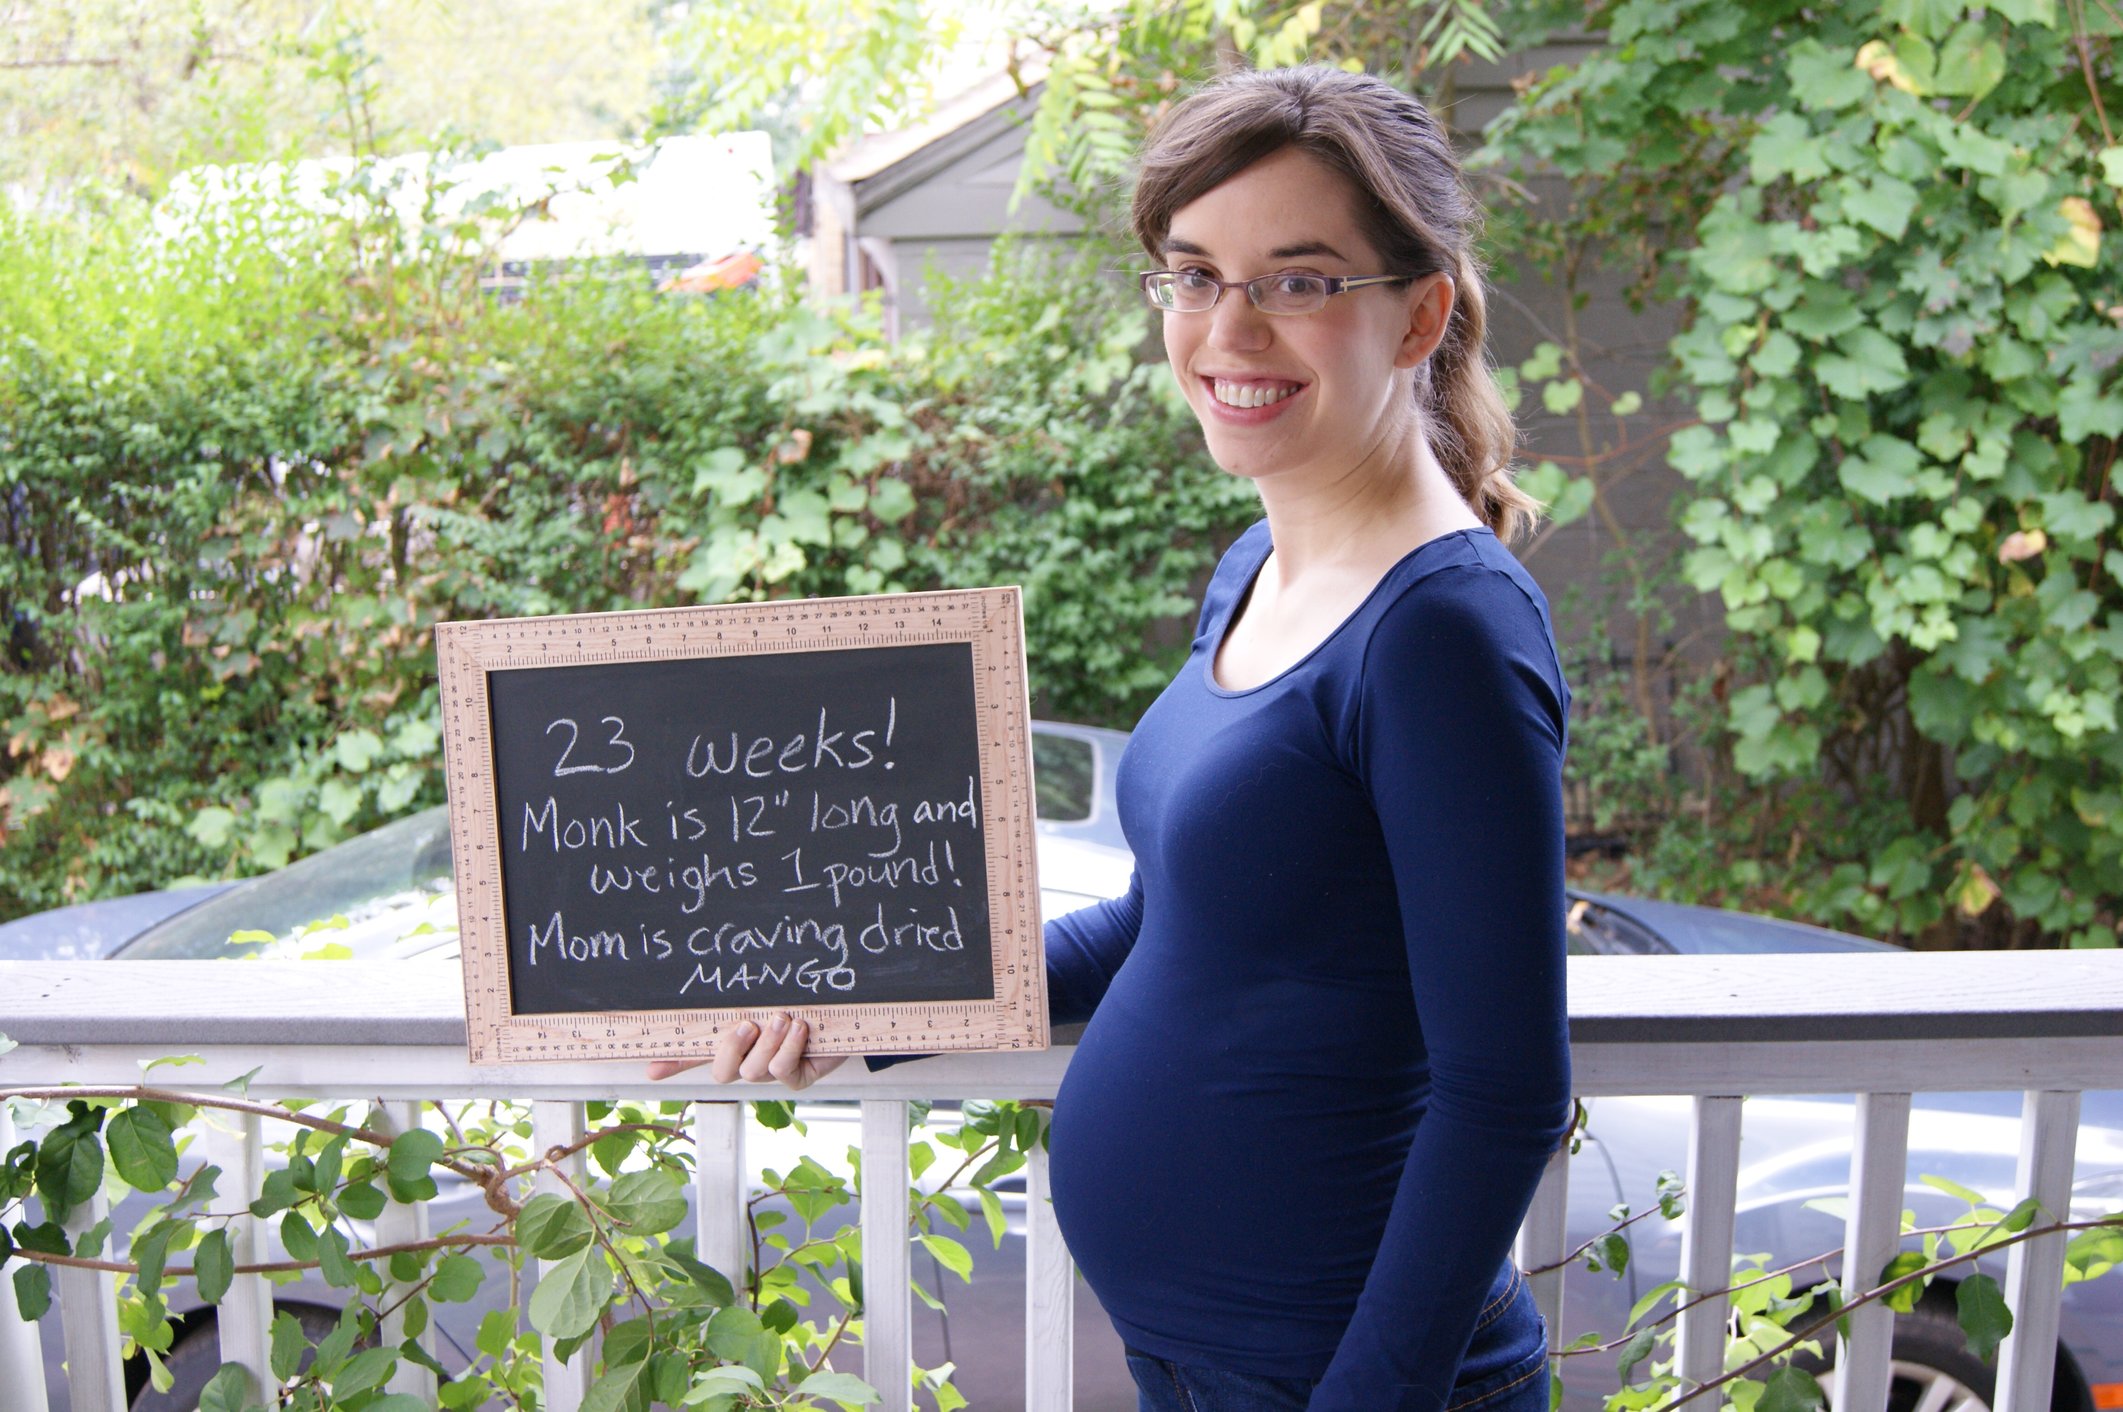 23 weeks!
Monk is 12" long and
weighs 1 pound!
Mom is craving dried
MANGO